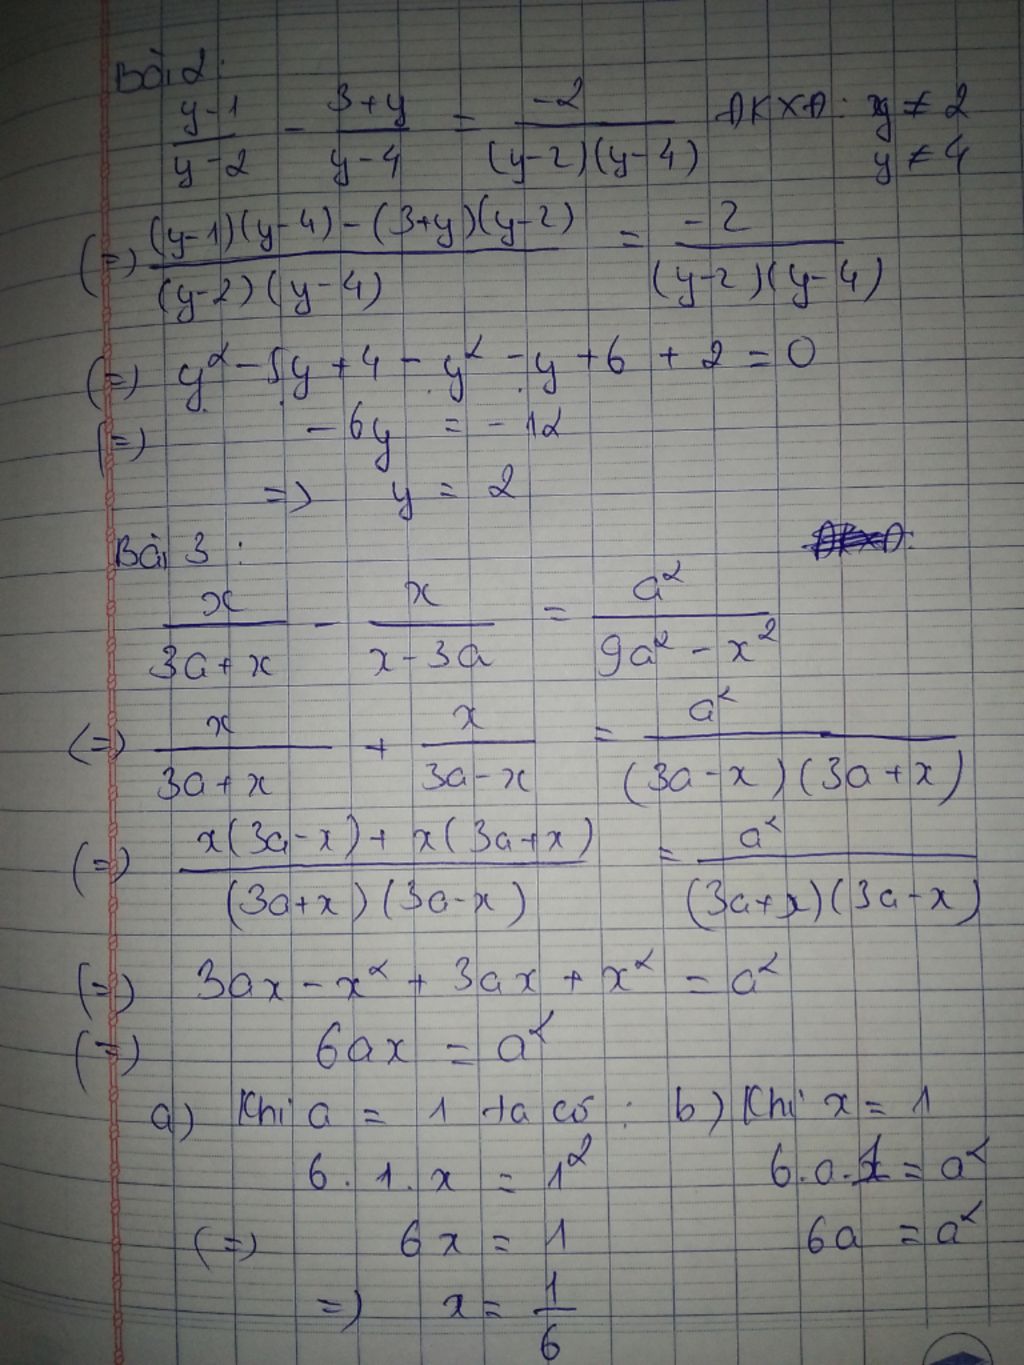 Bài 2:
(y-1)/(y-2) - (3+y)/(y-4) = -2/((y-2)(y-4)) ĐKXĐ: y ≠ 2
y ≠ 4
(=) ((y-1)(y-4) - (3+y)(y-2))/((y-2)(y-4)) = -2/((y-2)(y-4))
(=) y² - 5y + 4 - y² - y + 6 + 2 = 0
(=) - 6y = - 12
=) y = 2
Bài 3:
x/(3a+x) - x/(x-3a) = a²/(9a² - x²)
(=) x/(3a+x) + x/(3a-x) = a²/((3a-x)(3a+x))
(=) (x(3a-x) + x(3a+x))/((3a+x)(3a-x)) = a²/((3a+x)(3a-x))
(=) 3ax - x² + 3ax + x² = a²
(=) 6ax = a²
a) Khi a = 1 ta có: b) Khi x = 1
6.1.x = 1² 6.a.1 = a²
(=) 6x = 1 6a = a²
=) x = 1/6